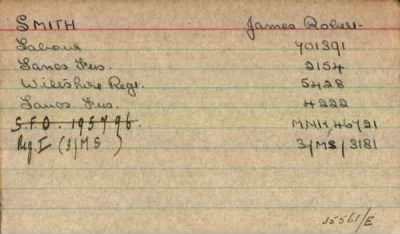 SMITH James Robert
Labour 701391
Lancs Fus. 2154
Wiltshire Regt. 5428
Lancs. Fus. 4222
S.F.O. 195796. MNK/46721
Reg. I (3/MS) 3/MS/3181
15561/E